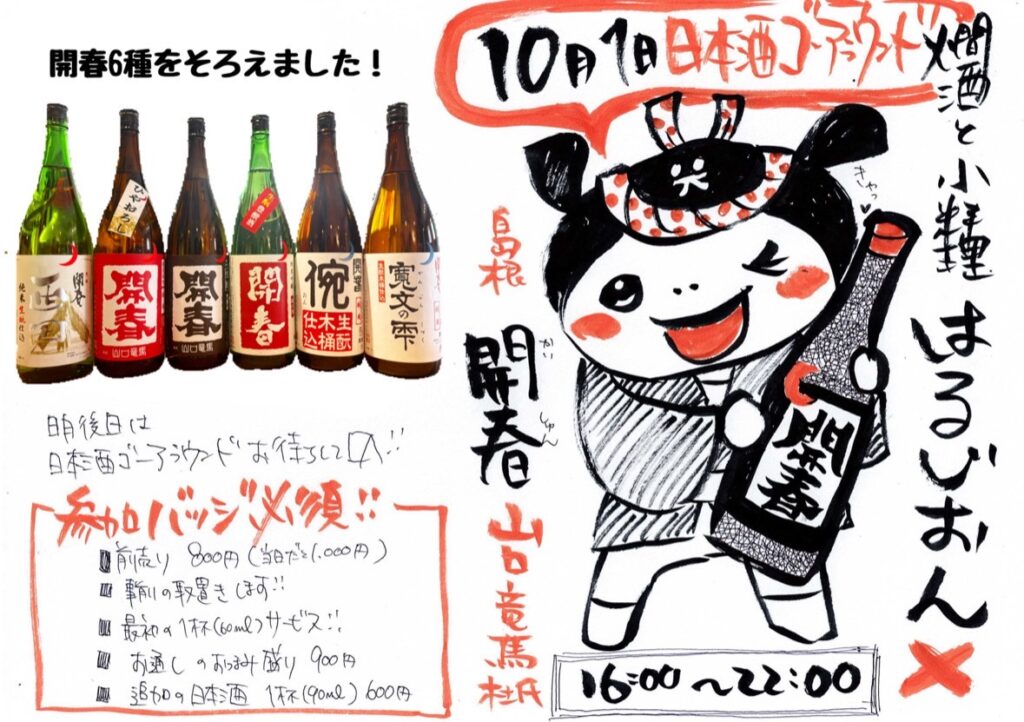 開春6種をそろえました！
西田
開春
純米生酛仕込
ひやおろし
開春
山口竜馬
開春
山口竜馬
開春
俺
生酛
木桶
仕込
寛文の雫
明後日は
日本酒ゴーアラウンド お待ちして〼!!
参加バッジ必須!!
前売り 800円(当日だと1,000円)
事前の取置きします!!
最初の1杯(60ml)サービス!!
お通しのおつまみ盛り 900円
追加の日本酒 1杯(90ml) 600円
10月1日 日本酒ゴーアラウンド
燗酒と小糧 はるじおん
×
きゃっ
島根
開春
かいしゅん
山口竜馬 杜氏
開春
16:00〜22:00